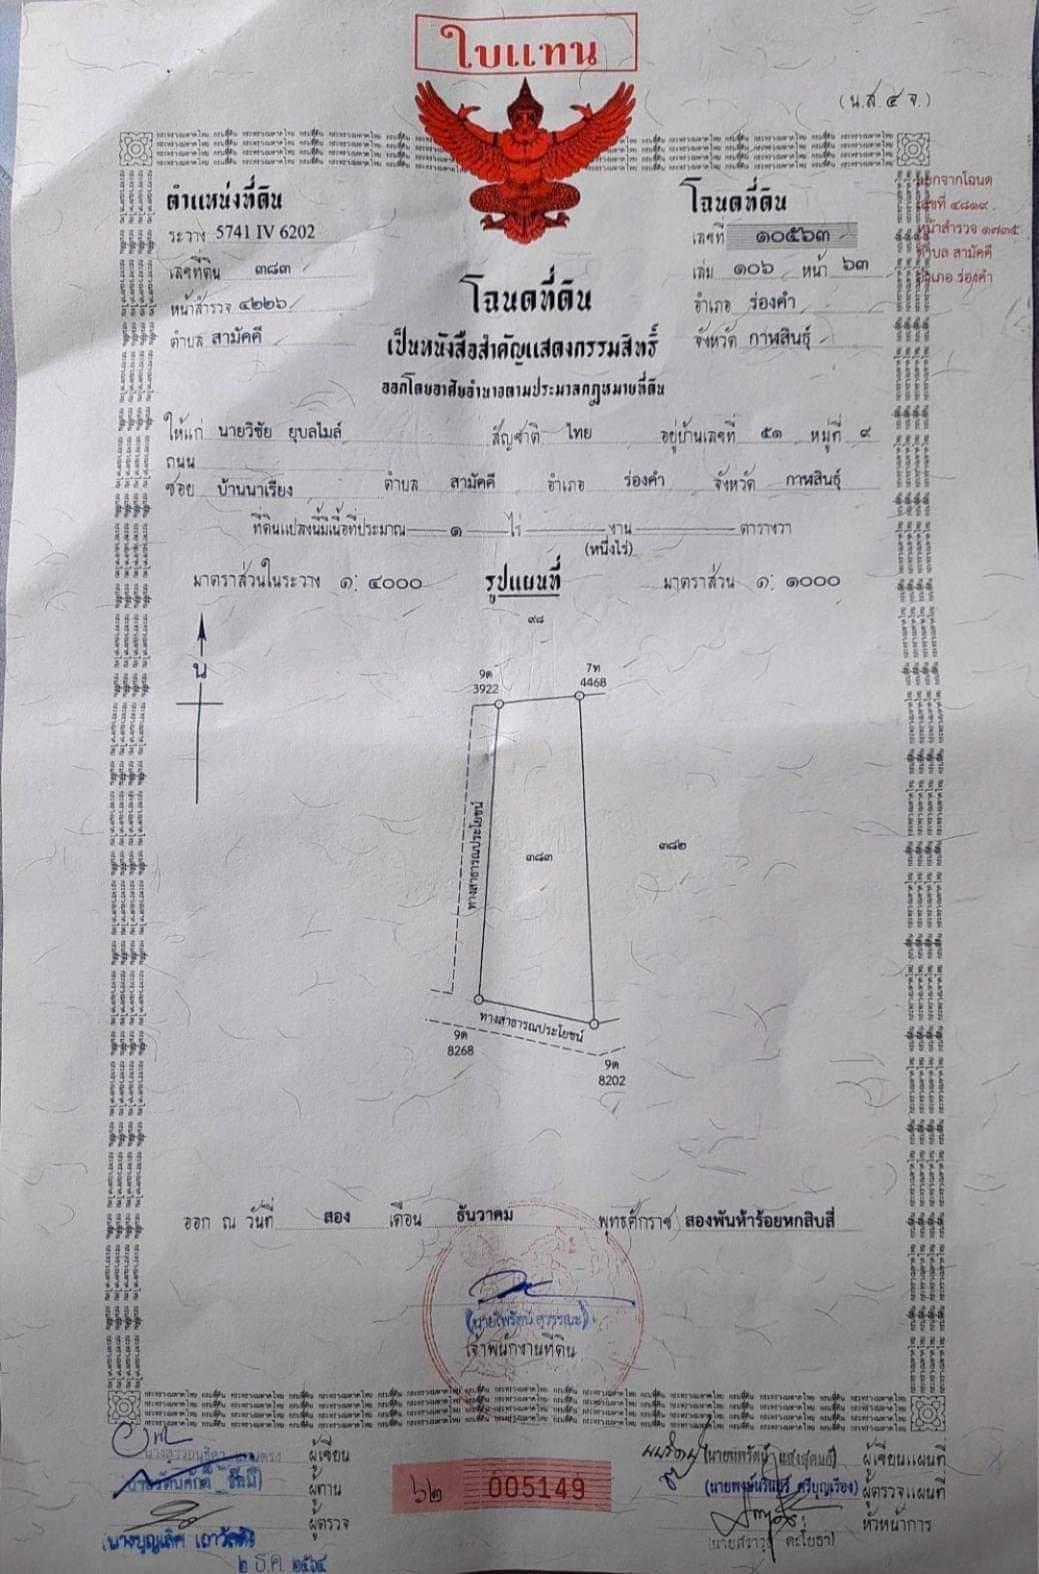 ใบแทน
(น.ส.๔ จ.)
ตำแหน่งที่ดิน
ระวาง 5741 IV 6202
เลขที่ดิน ๓๘๓
หน้าสำรวจ ๔๒๒๖
ตำบล สามัคคี
โฉนดที่ดิน
เลขที่ ๑๐๕๖๓
เล่ม ๑๐๖ หน้า ๖๓
อำเภอ ร่องคำ
จังหวัด กาฬสินธุ์
ออกจากโฉนด
เลขที่ ๔๘๑๙
หน้าสำรวจ ๑๗๓๕
ตำบล สามัคคี
อำเภอ ร่องคำ
โฉนดที่ดิน
เป็นหนังสือสำคัญแสดงกรรมสิทธิ์
ออกโดยอาศัยอำนาจตามประมวลกฎหมายที่ดิน
ให้แก่ นายวิชัย ยุบลไมล์ สัญชาติ ไทย อยู่บ้านเลขที่ ๕๑ หมู่ที่ ๙
ถนน
ซอย บ้านนาเรียง ตำบล สามัคคี อำเภอ ร่องคำ จังหวัด กาฬสินธุ์
ที่ดินแปลงนี้มีเนื้อที่ประมาณ ๑ ไร่ งาน ตารางวา
(หนึ่งไร่)
มาตราส่วนในระวาง ๑: ๔๐๐๐ รูปแผนที่ มาตราส่วน ๑: ๑๐๐๐
น
๙๘
9ต
3922
7ท
4468
ทางสาธารณประโยชน์
๓๘๓
๓๘๒
ทางสาธารณประโยชน์
9ต
8268
9ต
8202
ออก ณ วันที่ สอง เดือน ธันวาคม พุทธศักราช สองพันห้าร้อยหกสิบสี่
(นายไพรัตน์ สุวรรณะ)
เจ้าพนักงานที่ดิน
ผู้เขียน
ผู้ทาน
ผู้ตรวจ
๒ ธ.ค. ๒๕๖๔
๖๒ 005149
ผู้เขียนแผนที่
(นายพงษ์นรินทร์ ศรีบุญเรือง) ผู้ตรวจแผนที่
หัวหน้าการ